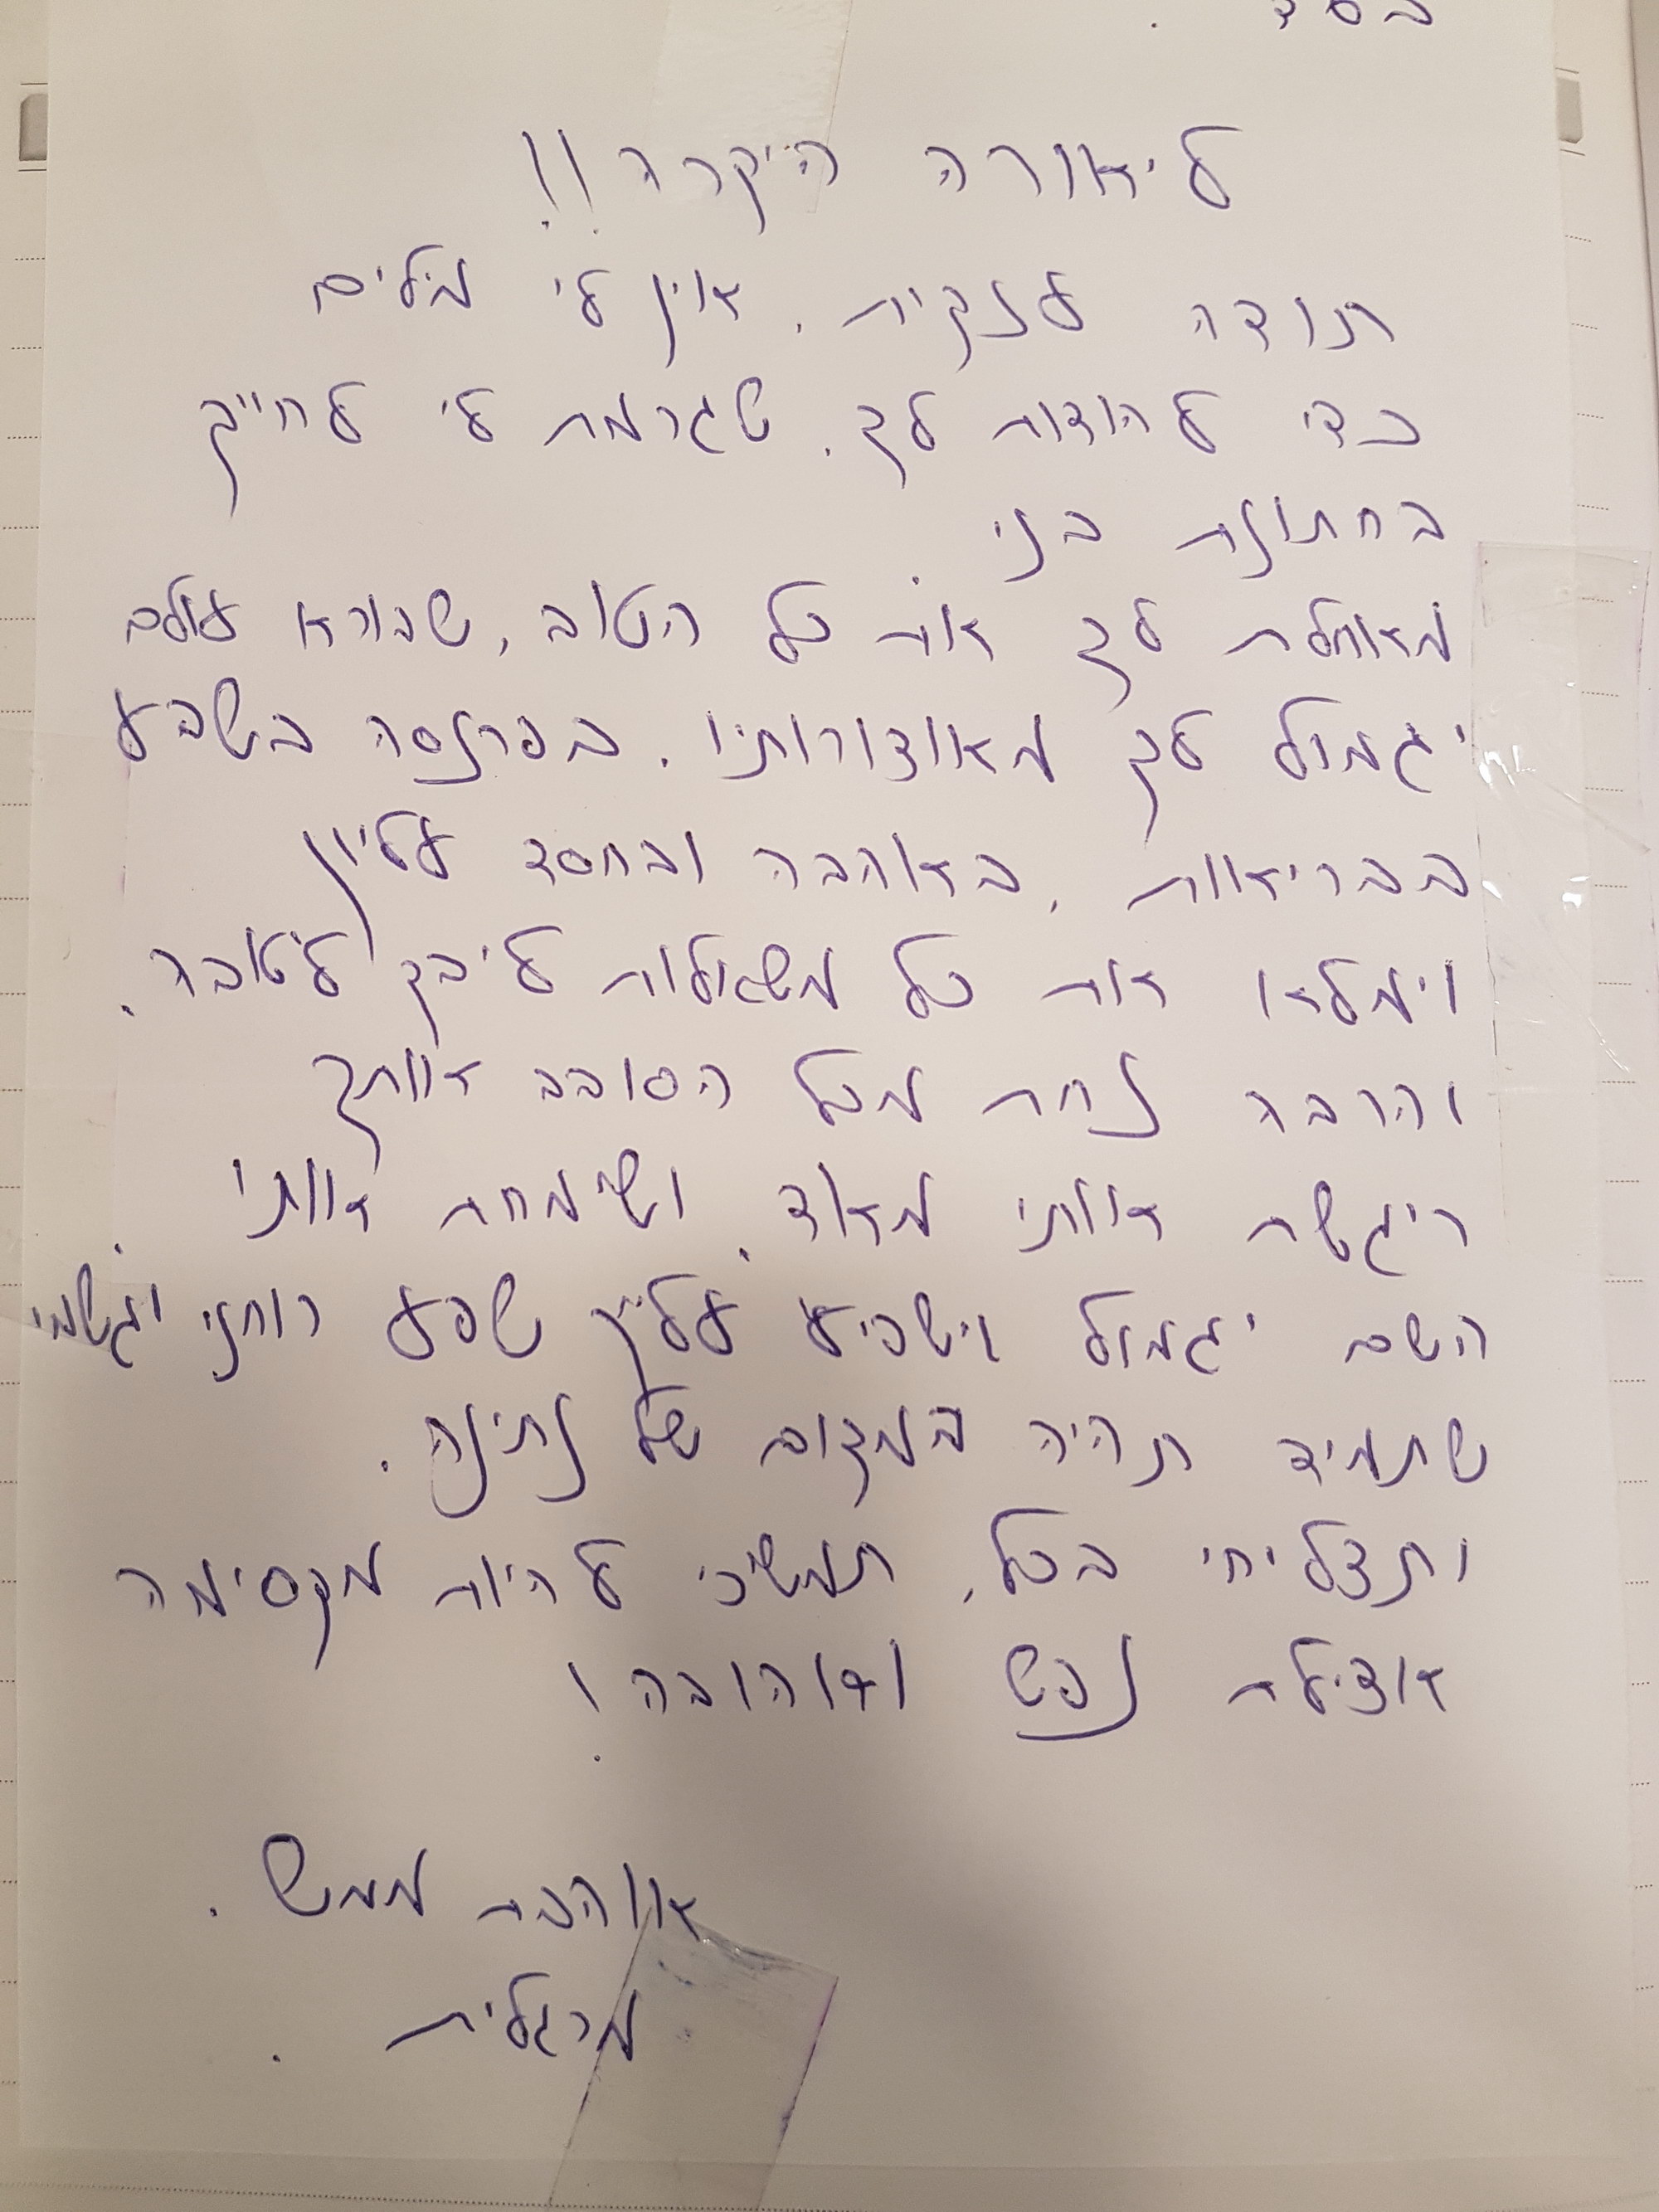 בסד
ליאורה היקרה!!
תודה ענקית. אין לי מילים
כדי להודות לך. שגרמת לי לחייך
בחתונת בני.
מאחלת לך את כל הטוב, שבורא עולם
יגמול לך מאוצרותיו. בפרנסה בשפע
בבריאות, באהבה ובחסד עליון
וימלא את כל משאלות ליבך לטובה.
והרבה נחת מכל הסובב אותך
ריגשת אותי מאוד. ושימחת אותי.
השם יגמול וישפיע עלייך שפע רוחני וגשמי
שתמיד תהיה במקום של נתינה.
ותצליחי בכל, תמשיכי להיות מקסימה
אצילת נפש ואהובה!
אוהבת ממש.
מרגלית.